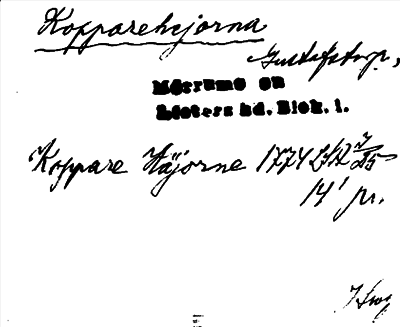 Kopparehejorna
Gustafstorp,
Mörrums sn
Listers hd. Blek. l.
Koppare Häjorne 1774 LSH 7/25
14' pr.